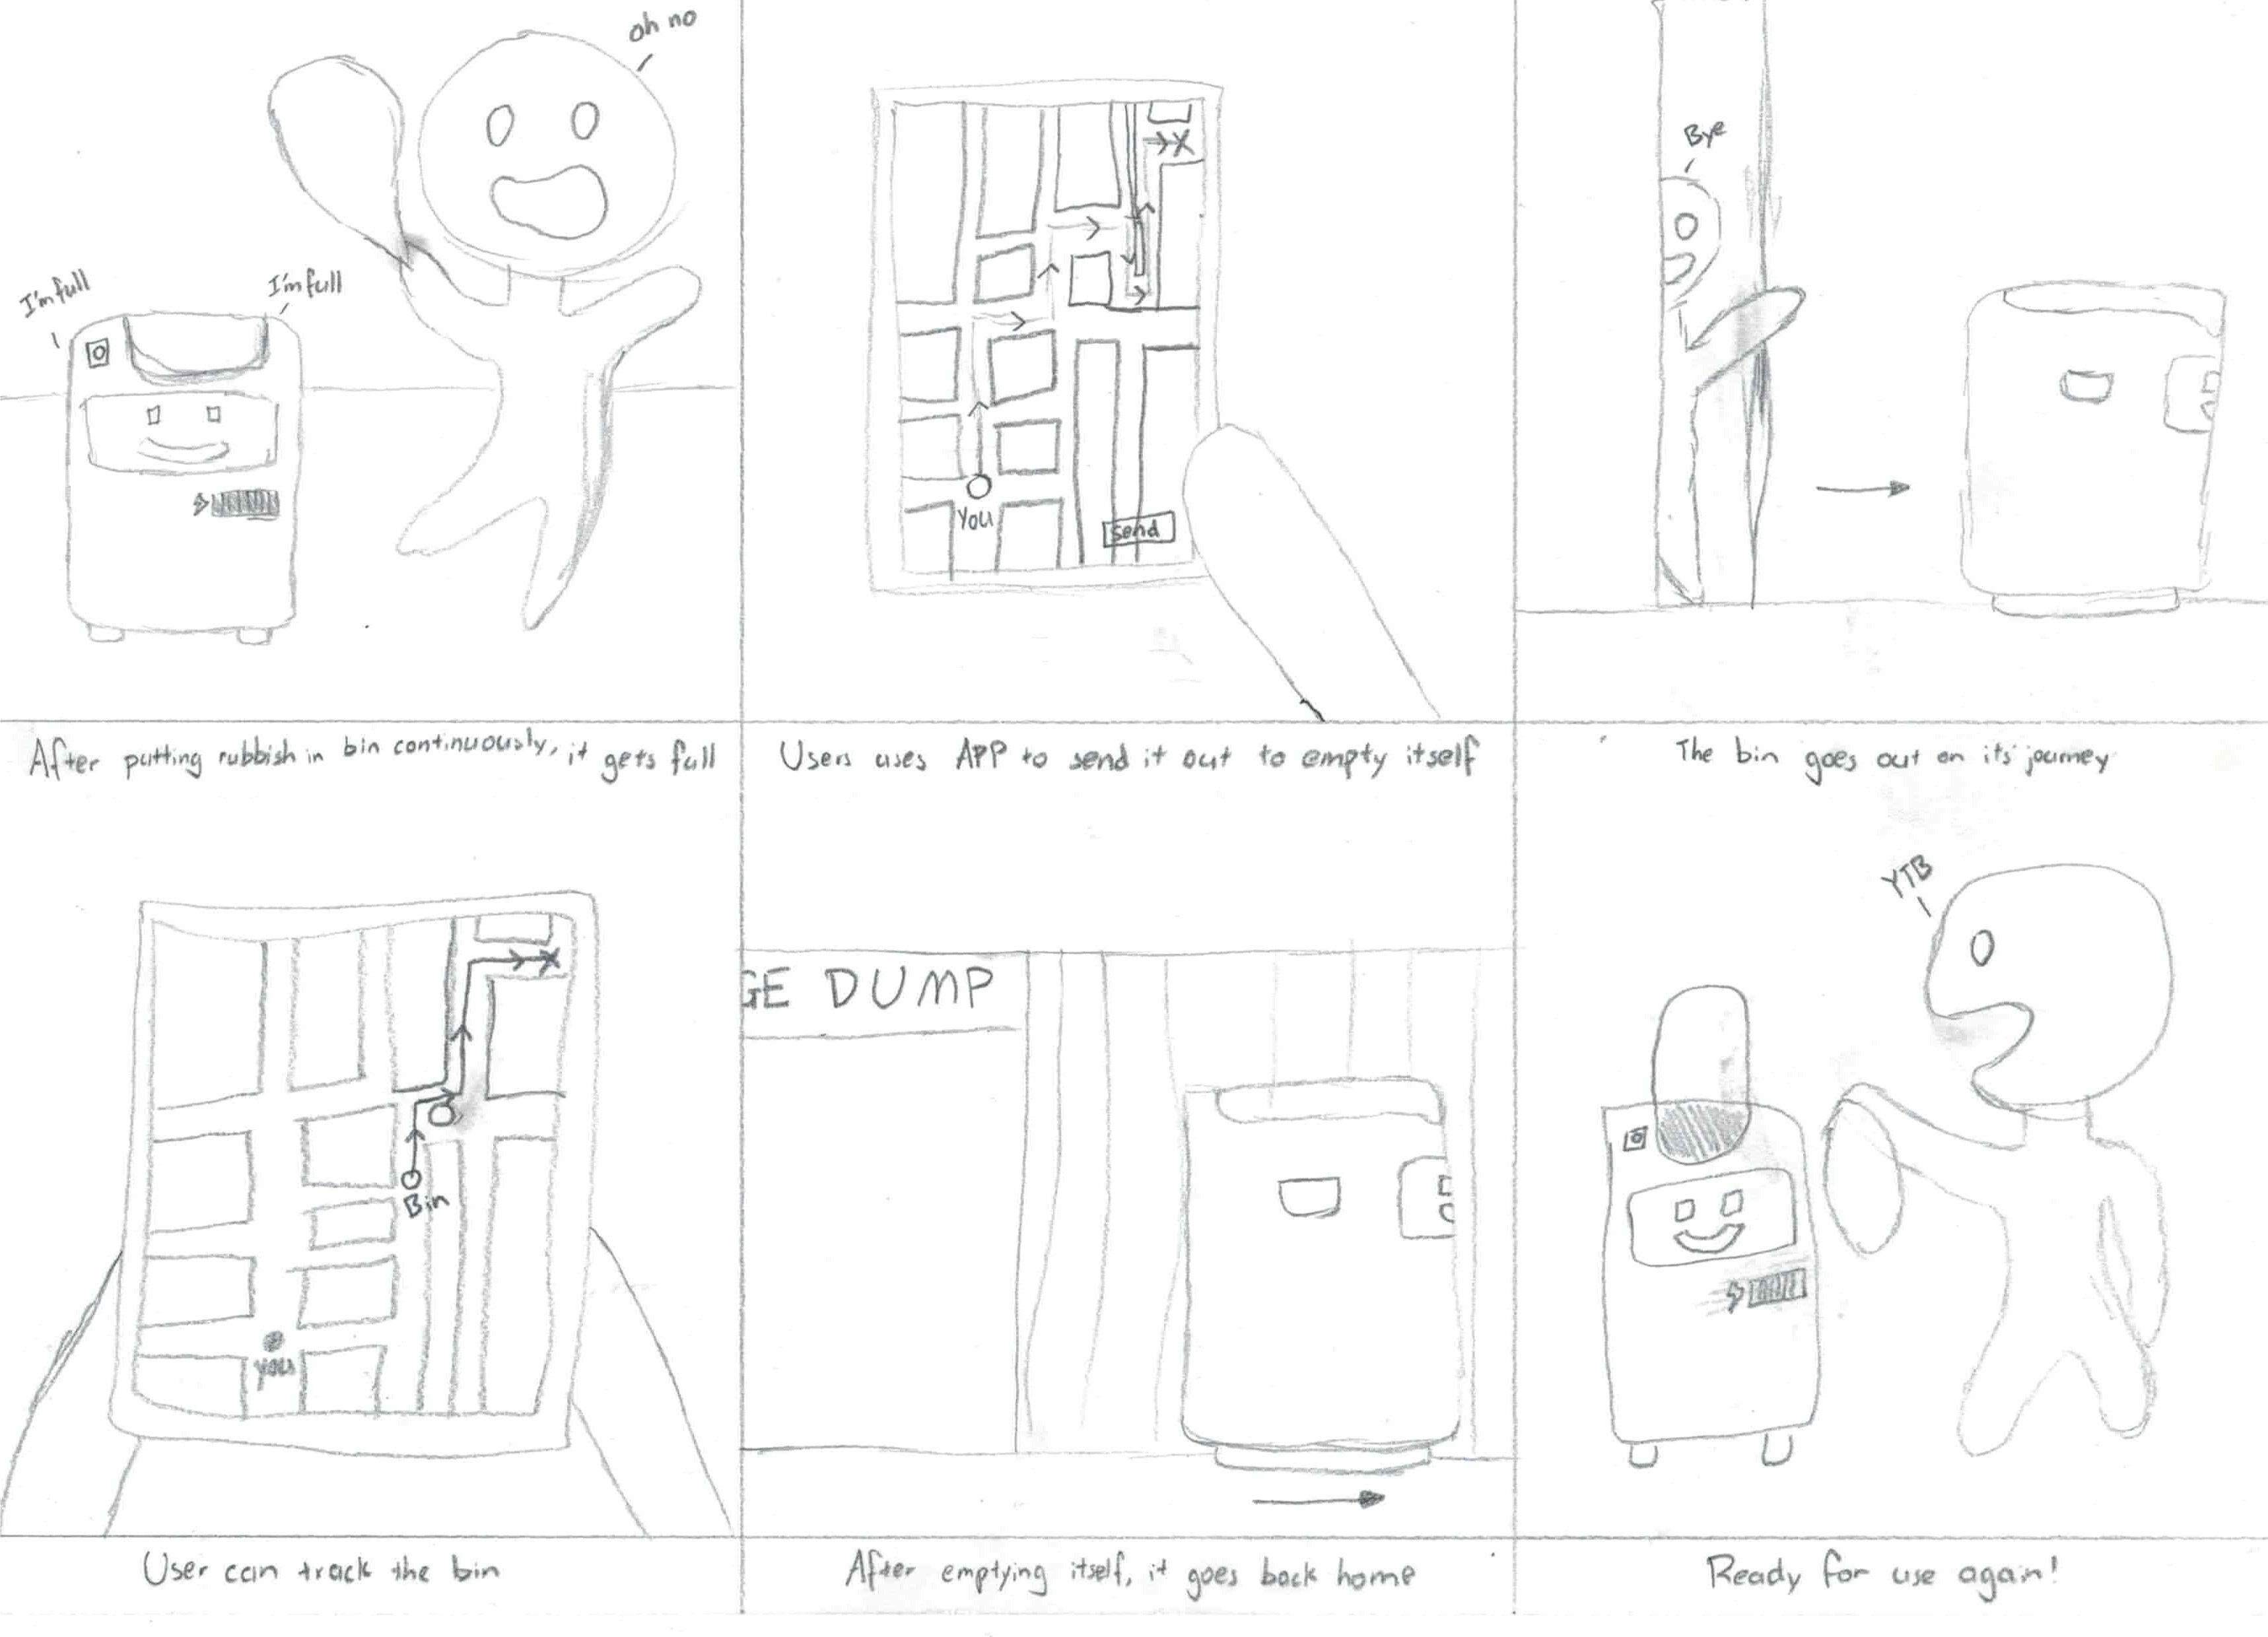 oh no
I'm full
I'm full
After putting rubbish in bin continuously, it gets full
X
You
send
Users uses APP to send it out to empty itself
Bye
The bin goes out on its' journey
X
Bin
you
User can track the bin
GE DUMP
After emptying itself, it goes back home
YTB
Ready for use again!